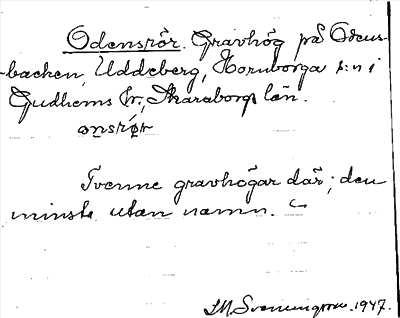 Odensrör. Gravhög på Odens-
backen, Uddeberg, Hornborga s:n i
Gudhems hr, Skaraborgs län.
ǫnsrǿr
Tvenne gravhögar där; den
minsta utan namn.
1947.